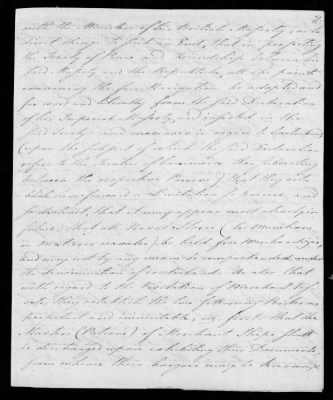 with the Minister of his British Majesty, as to
direct things to such an End, that in projecting
the Treaty of Peace and Friendship between his
said Majesty and the Republick, all the points
concerning the free Navigation be adopted and
for word and literally from the said Declaration
of her Imperial Majesty, and inserted in the
said Treaty and moreover in regard to Contraband
(upon the subject of which the said Declaration
refers to the Treaties of Commerce then subsisting
between the respective Powers) that they
forward a Limitation so precise, and
so distinct, that it may appear most clearly in
future, that all Naval Stores (les Munitions
et Matieres navales) be held free Merchandizes,
and may not by any means be comprehended under
the denomination of contraband. As also that
with regard to the Visitation of Merchant Ves-
sels, they establish the two following Positions
perpetual and immutable, viz, first that the
Masters (Patrons) of Merchant Ships shall
be discharged upon exhibiting their Documents,
from whence their Cargoes may be known, &